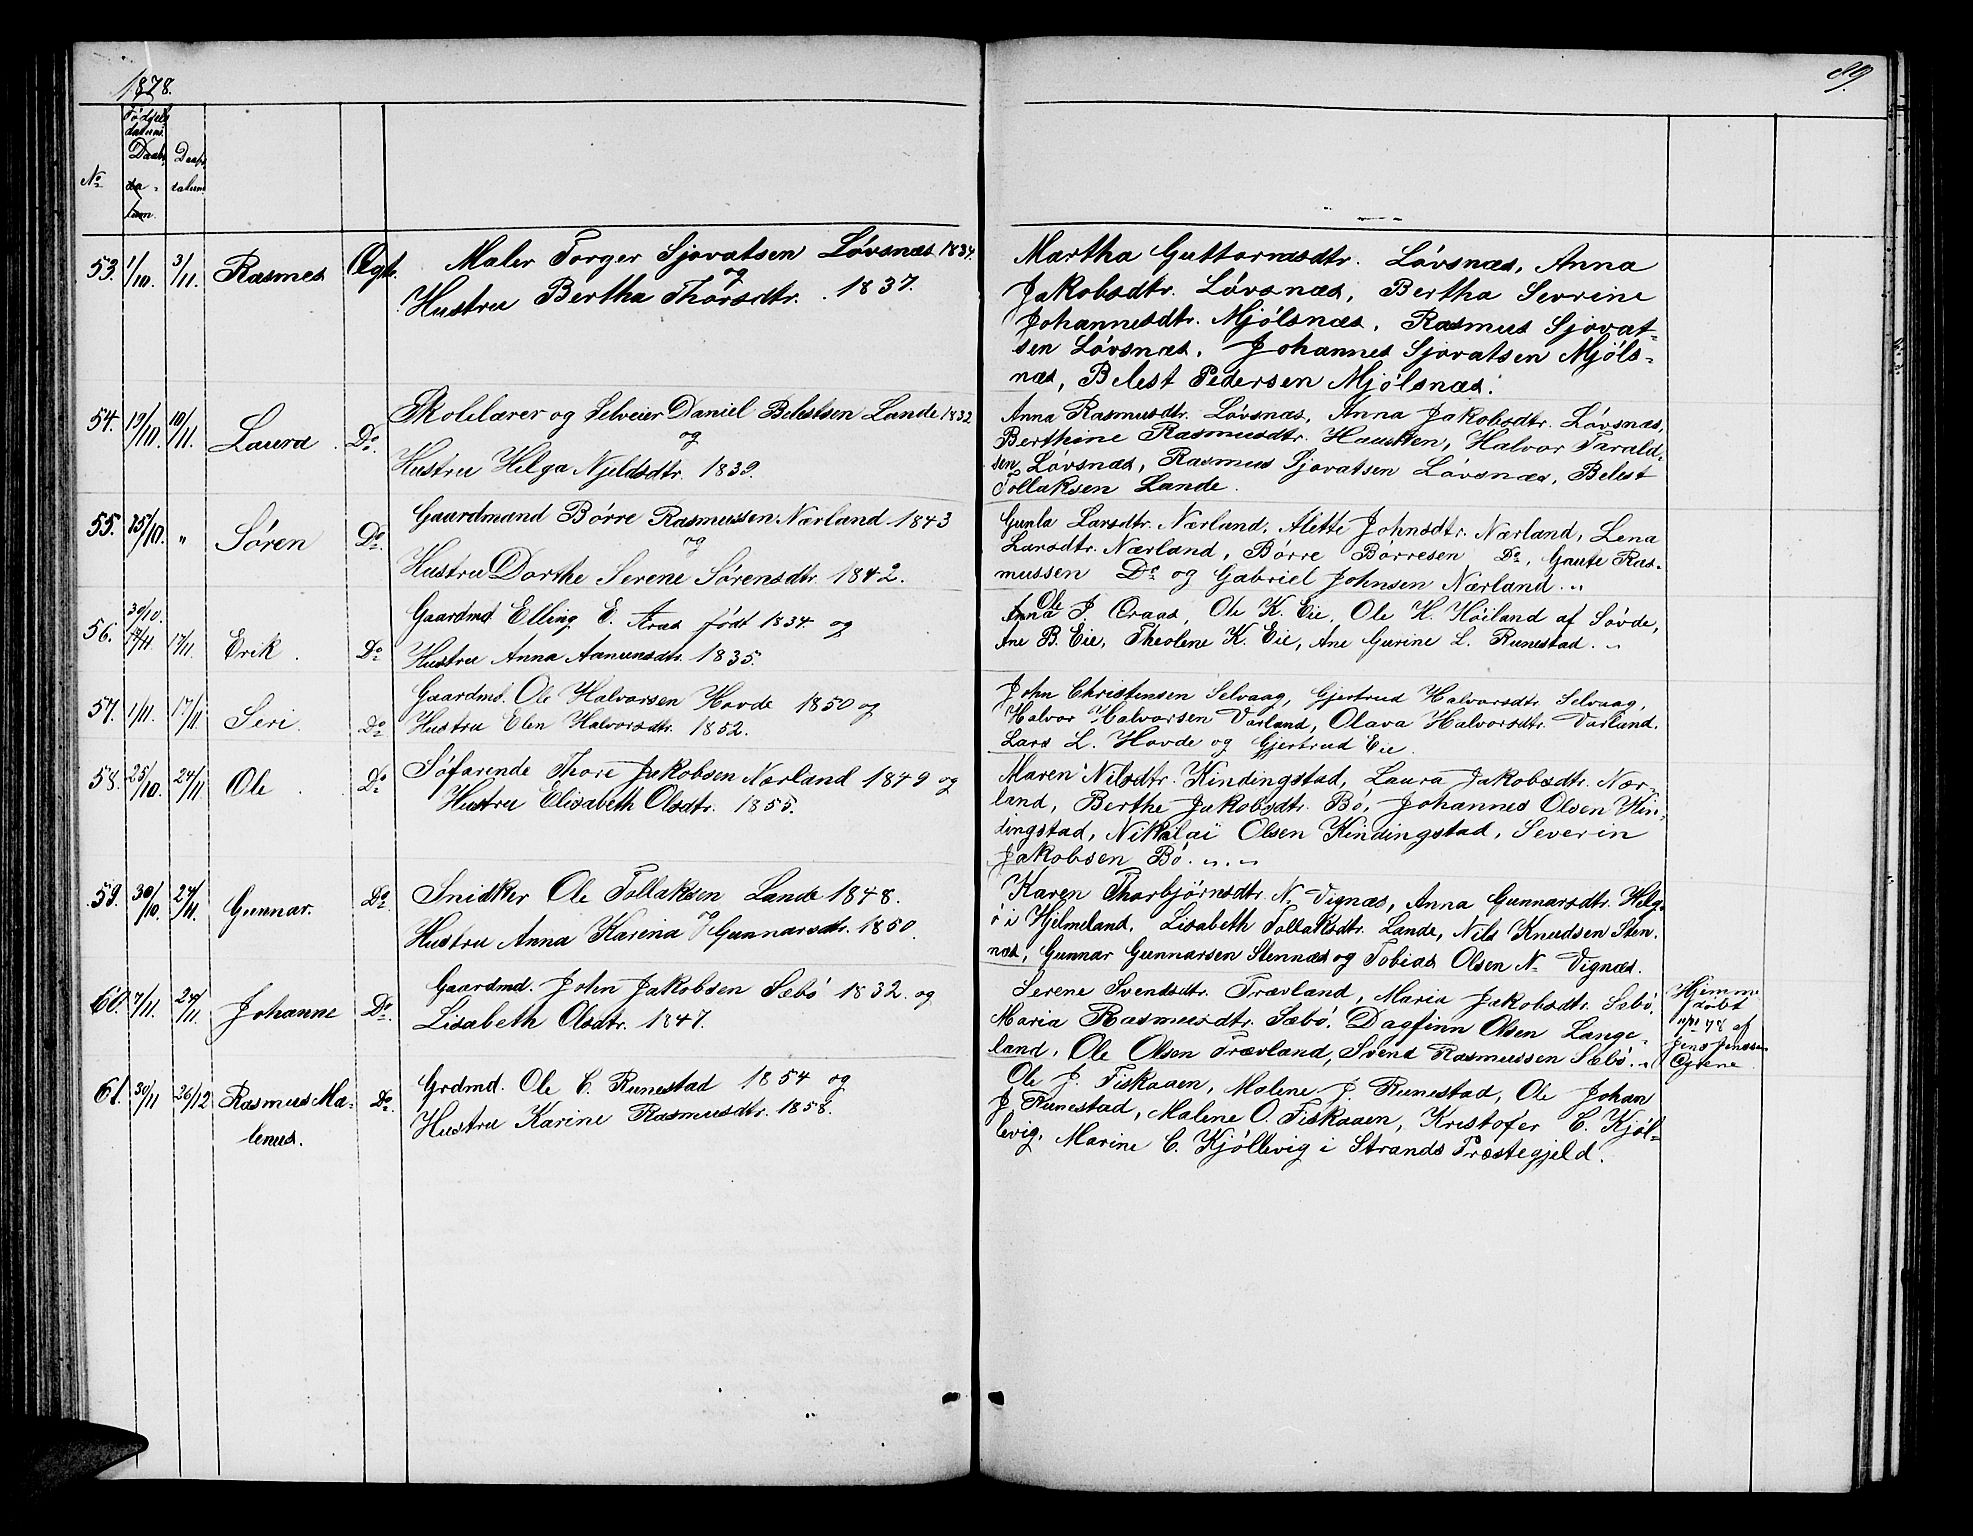 1878.
89.
Fødsels
datum.
No
Daabs
datum.
53. 1/10. 3/11. Rasmus Ægt. Maler Torger Sjovatsen Løvsnæs 1834.
og
Hustru Bertha Thorsdtr. 1837.
Martha Guttormsdtr. Løvsnæs, Anna
Jakobsdtr. Løvsnæs, Bertha Sevrine
Johannesdtr. Mjølsnæs, Rasmus Sjovat-
sen Løvsnæs, Johannes Sjovatsen Mjøls-
næs, Belest Pedersen Mjølsnæs.
54. 19/10. 10/11. Laura Do. Skolelærer og Selveier Daniel Belestsen Lande 1832
og
Hustru Helga Njeldsdtr. 1839.
Anna Rasmusdtr. Løvsnæs, Anna Jakobsdtr. Løvsnæs,
Berthine Rasmusdtr. Hausken, Halvor Tarald-
sen Løvsnæs, Rasmus Sjovatsen Løvsnæs, Belest
Tollaksen Lande.
55. 25/10. " Søren Do. Gaardmand Børre Rasmussen Nærland 1843
og
Hustru Dorthe Serene Sørensdtr. 1842.
Gunla Larsdtr. Nærland, Alette Johnsdtr. Nærland, Lena
Larsdtr. Nærland, Børre Børresen Do, Gaute Ras-
mussen Do og Gabriel Johnsen Nærland.
30/10.
56. 17/11. 17/11. Erik Do Gaardmd. Elling E. Aras født 1834 og
Hustru Anna Aamunsdtr. 1835.
Ole
Anna P. Craas, Ole K. Eie, Ole H. Høiland af Søvde,
Ane B. Eie, Theolene K. Eie, Ane Gurine L. Runestad.
57. 1/11. 17/11 Seri. Do Gaardmd. Ole Halvorsen Hovde 1850 og
Hustru Elen Halvorsdtr. 1852.
John Christensen Selvaag, Gjertrud Halvorsdtr Selvaag,
Halvor Halvorsen Varland, Olava Halvorsdtr. Varland.
Lars L. Hovde og Gjertrud Eie.
58. 25/10. 24/11 Ole Do Søfarende Thore Jakobsen Nærland 1849 og
Hustru Elisabeth Olsdtr. 1855.
Maren Nilsdtr. Kindingstad, Laura Jakobsdtr. Nær-
land, Berthe Jakobsdtr. Bø, Johannes Olsen Kin-
dingstad, Nikolai Olsen Kindingstad, Severin
Jakobsen Bø.
59. 30/10. 24/11. Gunnar. Do. Snidker Ole Tollaksen Lande 1848.
og
Hustru Anna Karina Gunnarsdtr. 1850.
Karen Thorbjørnsdtr. N. Vignæs, Anna Gunnarsdtr. Helg-
ø i Hjelmeland, Lisabeth Tollaksdtr. Lande, Nils Knudsen Sten-
næs, Gunnar Gunnarsen Stennæs og Tobias Olsen N. Vignæs.
60. 7/11. 24/11. Johanne Do. Gaardmd. John Jakobsen Sæbø 1832. og
Lisabeth Olsdtr. 1847.
Serene Svendsdtr. Trævland, Maria Jakobsdtr. Sæbø,
Maria Rasmusdtr. Sæbø. Dagfinn Olsen Lange-
land, Ole Olsen Trævland, Svend Rasmussen Sæbø.
Hjemme
døbt
78 af
Jens Jensen
61. 30/11 26/12 Rasmus Ma-
lenus. Do. Grdmd. Ole C. Runestad 1854 og
Hustru Karine Rasmusdtr. 1858.
Ole J. Fiskaaen, Malene J. Runestad, Ole Johan
J. Runestad, Malene O. Fiskaaen, Kristofer C. Kjøl-
levig, Marine C. Kjøllevig i Strands Præstegjeld.